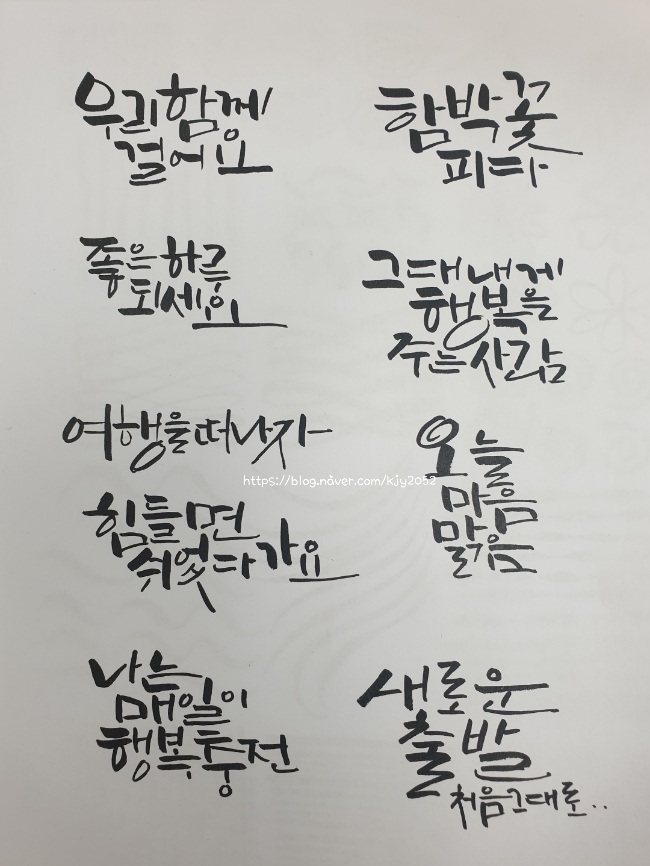 우리 함께
걸어요
함박꽃
피다
좋은 하루
되세요
그대 내게
행복을
주는 사람
여행을 떠나자
오늘
마음
맑음
https://blog.naver.com/kjy2052
힘들면
쉬었다가요
나는
매일이
행복충전
새로운
출발
처음그대로..